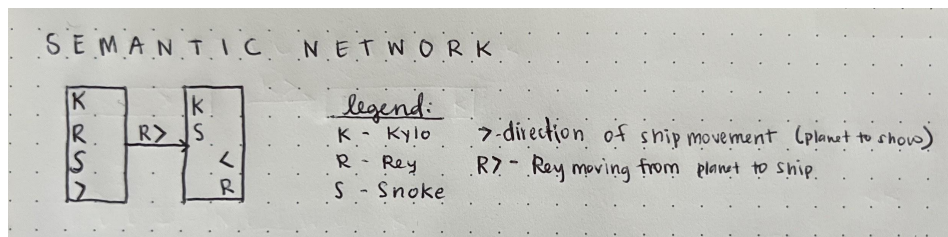 SEMANTIC NETWORK
K
R
S
>
R>
K
S
<
R
legend:
K - Kylo
R - Rey
S - Snoke
> - direction of ship movement (planet to show)
R> - Rey moving from planet to ship.